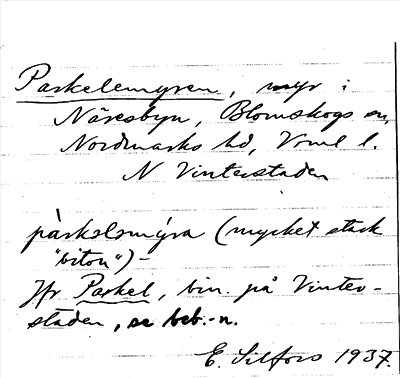 Parkelemyren, myr i
Näresbyn, Blomskogs sn,
Nordmarks hd, Vrml l.
N Vinterstaden
pàrkəlsmýra (mycket stark
"biton") -
Jfr Parkel, bin. på Vinter-
staden, se beb.-n.
E. Silfors 1937.